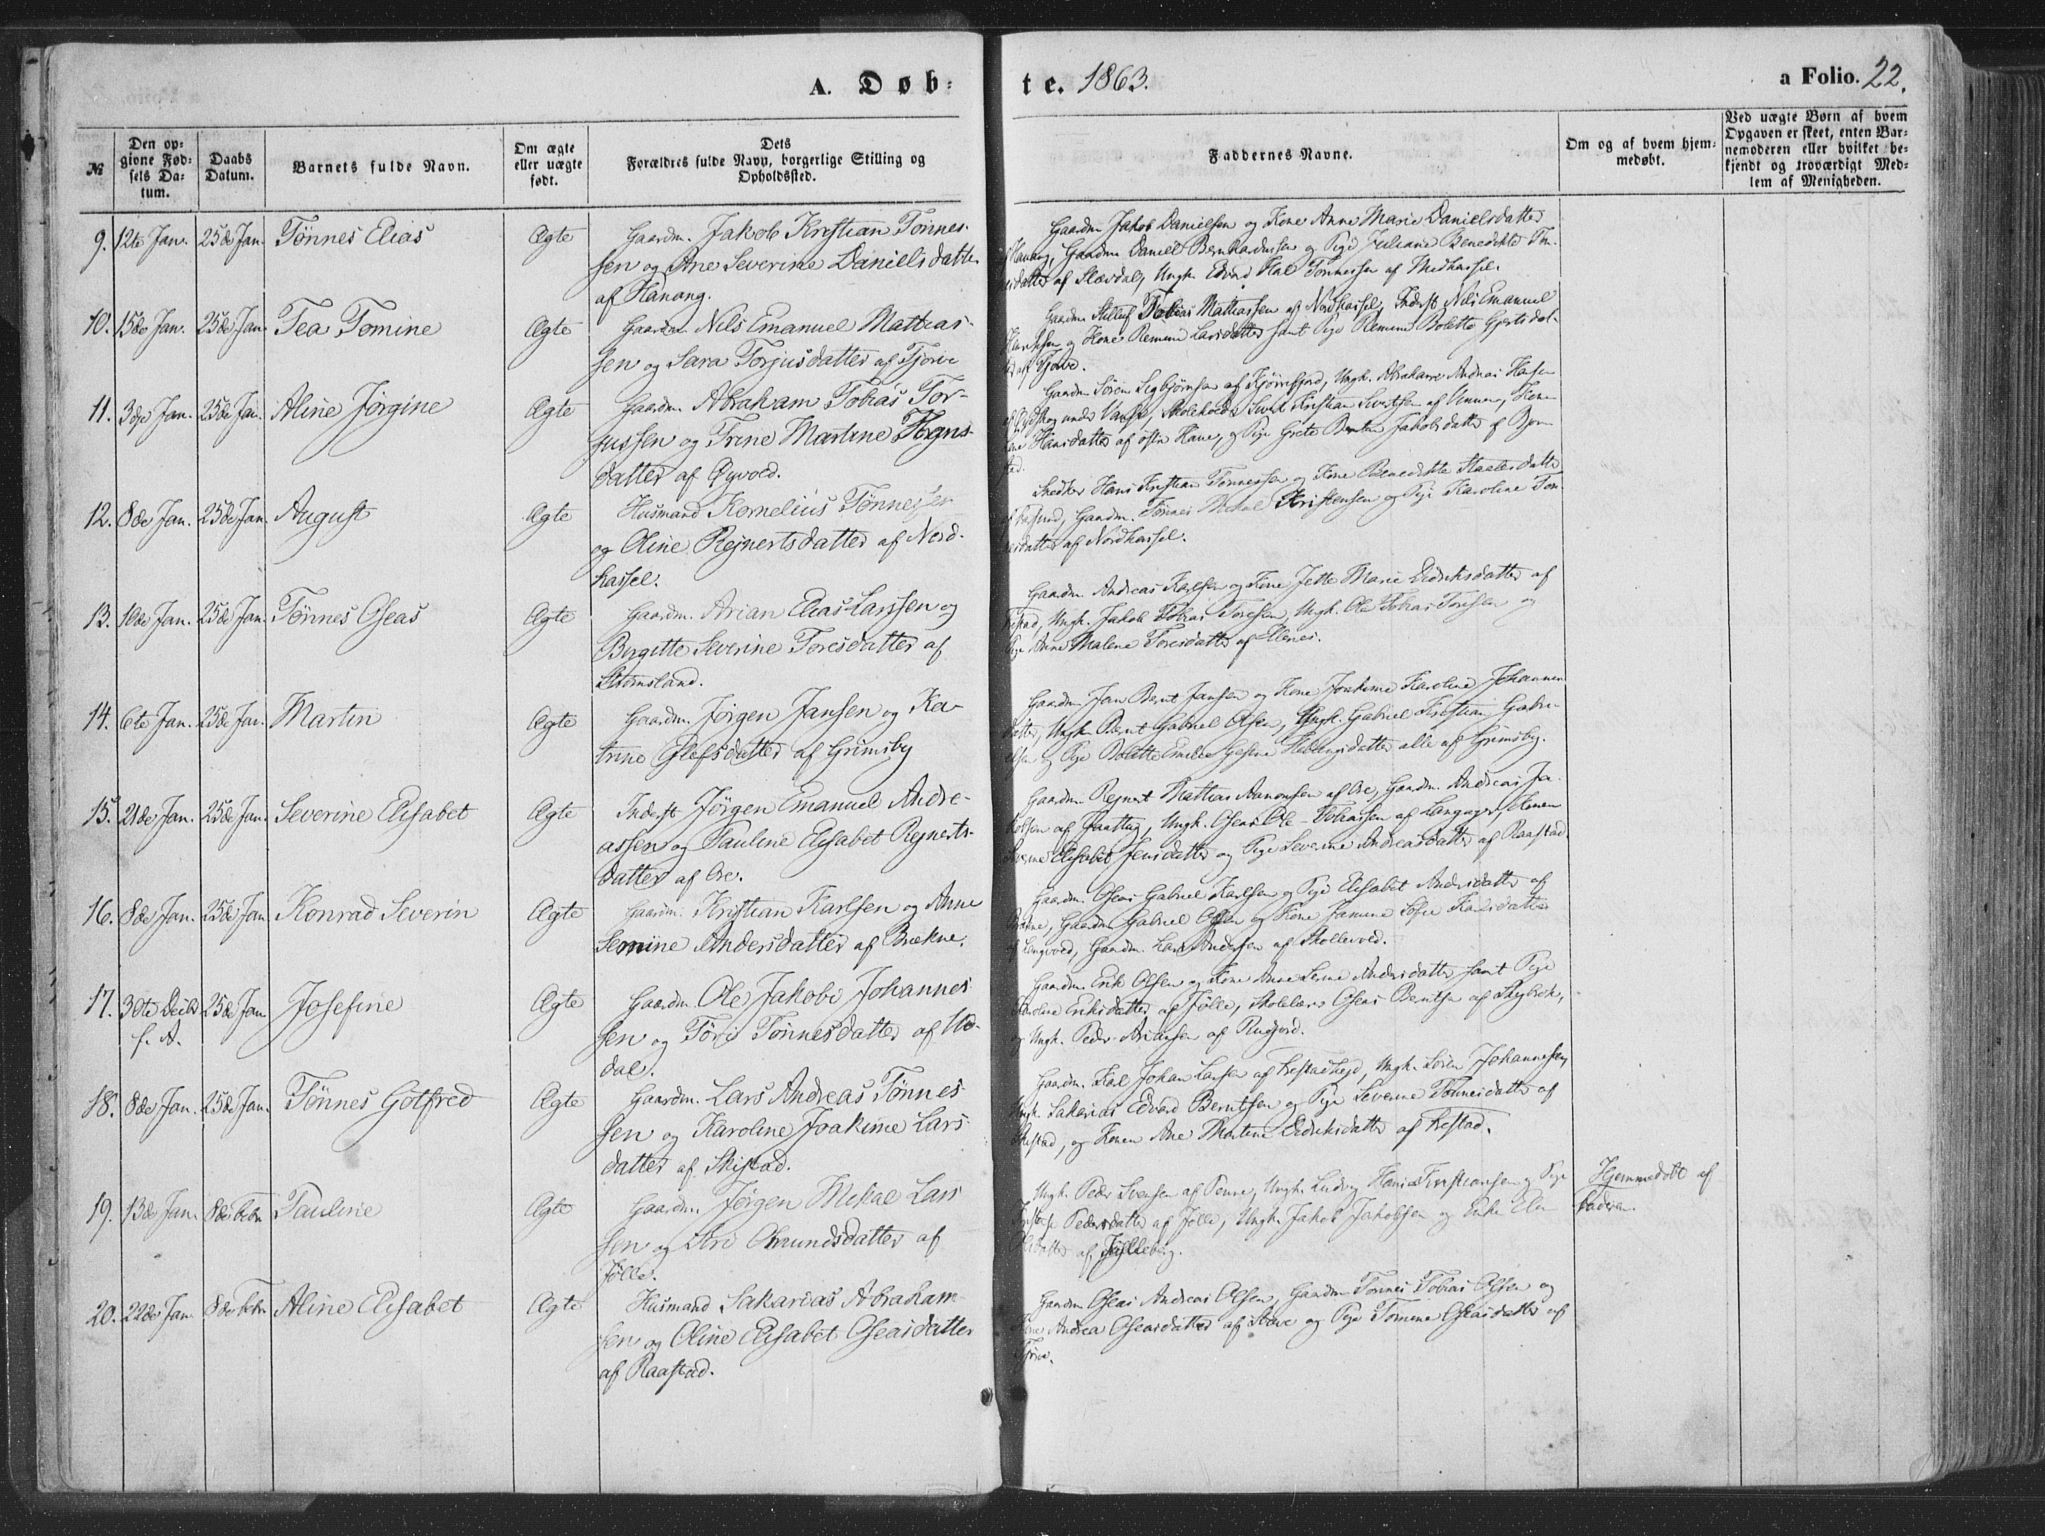 A. Døb=
te. 1863.
a Folio. 22.
№
Den op=
givne Fød=
sels Da=
tum.
Daabs
Datum.
Barnets fulde Navn.
Om ægte
eller uægte
født.
Dets
Forældres fulde Navn, borgerlige Stilling og
Opholdssted.
Faddernes Navne.
Om og af hvem hjem=
medøbt.
Ved uægte Børn af hvem
Opgaven er skeet, enten Bar=
nemoderen eller hvilket be=
kjendt og troværdigt Med=
lem af Menigheden.
9. 12te Jan. 25de Jan. Tønnes Elias Ægte Gaardm. Jakob Kristian Tønnes-
sen og Ane Severine Danielsdatter
af Hanang.
Gaardm. Jakob Danielsen og Kone Anne Marie Danielsdatter
Hanang, Gaardm. Daniel Bernhardussen og Pige Juliane Benedikte Tøn-
datter af Slevdal, Ungk. Edvard Tønnessen af Midhassel.
10. 15de Jan. 25de Jan. Tea Tomine Ægte Gaardm. Nils Emanuel Mathias-
sen og Sara Torjusdatter af Tjørve
Gaardm. Tobias Mathiassen af Nordhassel, Inderst Nils Emanuel
og Kone Larsdatter samt Pige Bolette Gjertsdat-
af Tjørve.
11. 3dje Jan. 25de Jan. Aline Jørgine Ægte Gaardm. Abraham Tobias Tor-
jussen og Trine Martine
datter af
Gaardm. Sören Sigbjørnsen af Kjørrefjord, Ungk. Abraham Andreas Hansen
under Vanse, Skoleholder Sivert Kristian Sivertsen af Vinnes, Kone
Hansdatter af østre Hauge, og Pige Grete Bertine Jakobsdatter af
12. 8de Jan. 25de Jan. August Ægte Husmand Kornelius Tønnessen
og Oline Rejnertsdatter af Nord-
hassel.
Snedker Hans Kristian Tønnessen og Kone Benedikte
Gaardm. Tønnes Mikal Kristensen og Pige Karoline Tøn-
nesdatter af Nordhassel.
13. 10de Jan. 25de Jan. Tønnes Oseas Ægte Gaardm. Arian Elias Larssen og
Bergitte Severine Toresdatter af
Stomsland.
Gaardm. Andreas Karlsen og Kone Jette Marie Didriksdatter af
Ungk. Jakob Tobias Toresen, Ungk. Ole Tobias Toresen og
Pige Anne Malene Toresdatter af
14. 6te Jan. 25de Jan. Martin Ægte Gaardm. Jørgen Jansen og Ka-
trine Olefsdatter af Grimsby
Gaardm. Jan Bernt Jansen og Kone Joakime Karoline Johannes
datter, Ungk. Bernt Gabriel Olsen, Ungk. Gabriel Kristian Gabri-
elsen og Pige Bolette Emilie alle af Grimsby.
15. 21de Jan. 25de Jan. Severine Elisabet Ægte Inderst Jørgen Emanuel Andre-
assen og Pauline Elisabet Rejnerts-
datter af Ore.
Gaardm. Rejnert Mathias Aanonsen af Ore, Gaardm. Andreas Ja-
kobsen af Ungk. Oseas Ole Tobiassen af Langager,
Elisabet Jensdatter og Pige Severine Andreasdatter af Raastad.
16. 8de Jan. 25de Jan. Konrad Severin Ægte Gaardm. Kristian Karlsen og Anne
Semine Andersdatter af Brekne.
Gaardm. Oseas Gabriel Karlsen og Pige Elisabet Andersdatter af
Gaardm. Gabriel Olsen og Kone Jamine Sofie Karlsdatter
af Langvold, Gaardm. Andersen af Skollevold.
17. 30te Decbr 25de Jan. Josefine Ægte Gaardm. Ole Jakob Johannes
f. A.
sen og Tøri Tønnesdatter af Ud-
dal.
Gaardm. Erik Olsen og Kone Anne Andersdatter samt Pige
Eriksdatter af Jølle, Skolelærer Oseas Berntsen af
og Ungk. Peder Ariansen af
18. 8de Jan. 25de Jan. Tønnes Gotfred Ægte Gaardm. Lars Andreas Tønnes-
sen og Karoline Joakime Lars-
datter af Skistad.
Gaardm. Karl Johan Larsen af Ungk. Sören Johannesen,
Ungk. Sakarias Edvard Berntsen og Pige Severine Tønnesdatter af
Skistad, og Konen Ane Martine Didriksdatter af
19. 13de Jan. 8de Febr Pauline Ægte Gaardm. Jørgen Mikal Lars
sen og Siri Omundsdatter af
Jølle.
Ungk. Peder Svensen af Penne, Ungk. Ludvig Hans Kristiansen og Pige
Pedersdatter af Jølle, Ungk. Jakob Jakobsen og Enke
af
Hjemmedøbt af
Faderen.
20. 22de Jan. 8de Febr Aline Elisabet Ægte Husmand Sakarias Abraham-
sen og Oline Elisabet Oseasdatter
af Raastad.
Gaardm. Oseas Andreas Olsen, Gaardm. Tønnes Tobias Olsen og
Kone Andrea Oseasdatter af Stave og Pige Tomine Oseasdatter af
Tjørve.